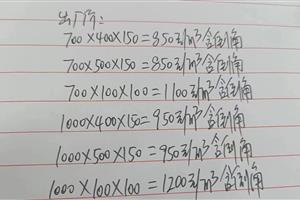 出厂价:
700×400×150=850元/m³含倒角
700×500×150=850元/m³含倒角
700×100×100=1100元/m³含倒角
1000×400×150=950元/m³含倒角
1000×500×150=950元/m³含倒角
1000×100×100=1200元/m³含倒角